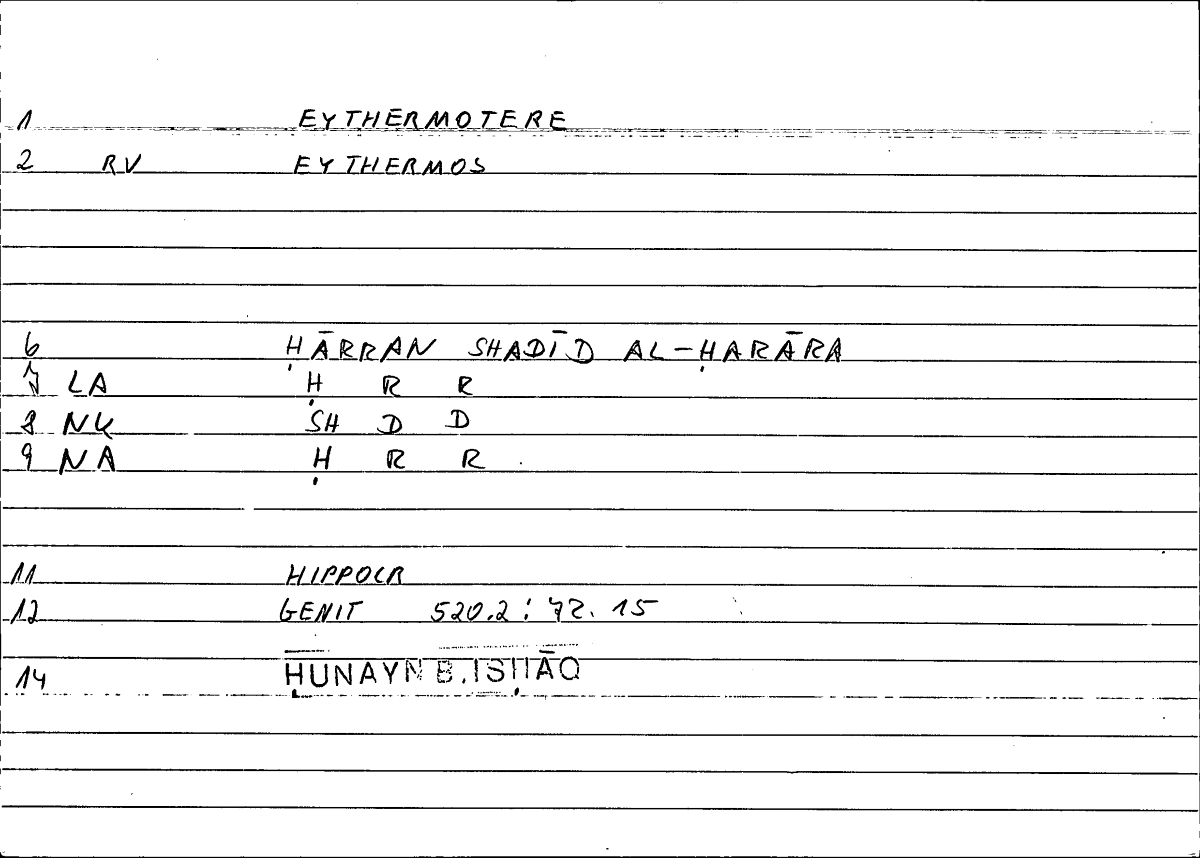 1 EYTHERMOTERE
2 RV EYTHERMOS
6 ḤĀRRAN SHADĪD AL-ḤARĀRA
7 LA Ḥ R R
8 NK SH D D
9 NA Ḥ R R
11 HIPPOCR
12 GENIT 520.2 : 72.15
14 ḤUNAYN B. ISḤĀQ